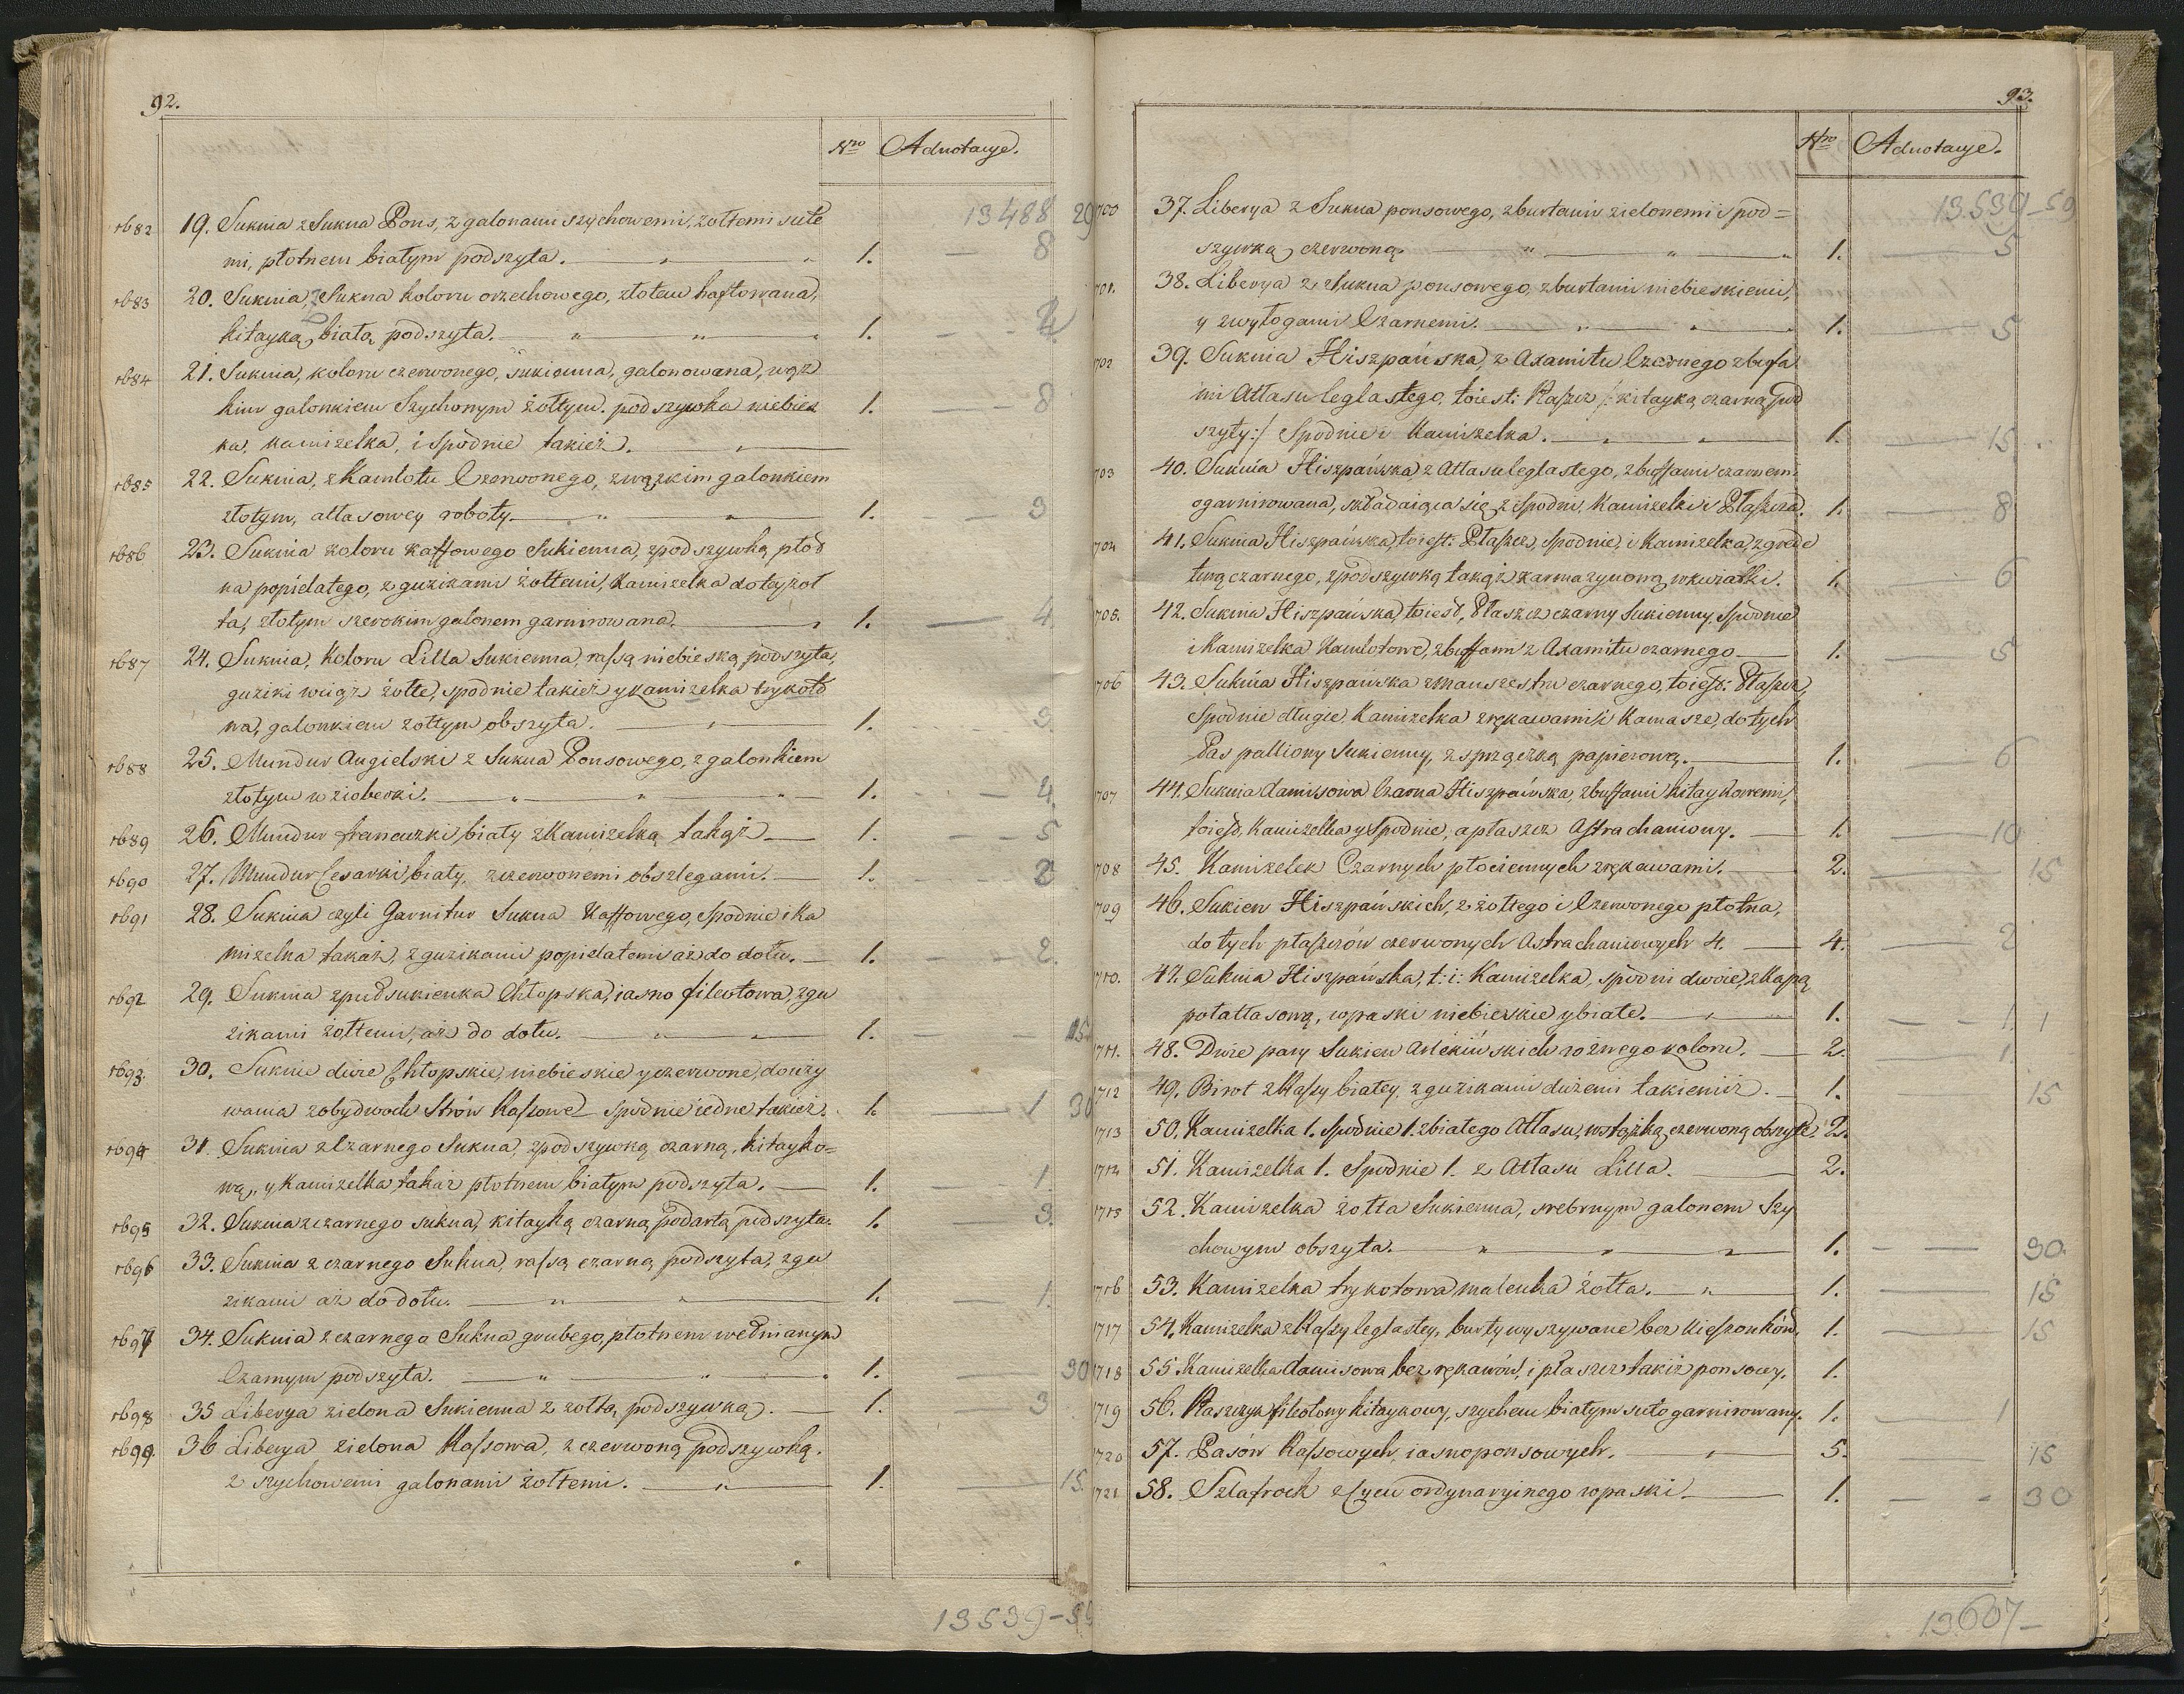 92.
Nro Adnotacye.
13488 29
1682 19. Suknia z Sukna Pons, z galonami szychowemi, żołtemi sute
mi, płotnem białym podszyta. 1. — 8
1683 20. Suknia z Sukna koloru orzechowego, złotem haftowana,
kitayką białą podszyta. 1. —
1684 21. Suknia, koloru czerwonego, sukienna, galonowana, wąz
kim galonkiem Szychonym żołtym. podszywka niebies 1. — 8
ka, kamizelka, i Spódnie takież.
1685 22. Suknia, z Kamlotu Czerwonego, z wązkim galonkiem
złotym, atłasowey roboty. 1. — 3
1686 23. Suknia koloru kaffowego Sukienna, z podszywką płod
na popielatego, z guzikami żołtemi, Kamizelka do tey żoł
ta, złotym szerokim galonem garnirowana. 1. — 4.
1687 24. Suknia, Koloru Lilla Sukienna, rassą niebieską podszyta,
guziki wciąż żołte, spodnie takież y kamizelka trykoto
wa, galonkiem żołtym obszyta. 1. 3.
1688 25. Mundur Angielski z Sukna Ponsowego, z galonkiem
złotym w zioberki. 1. — 4.
1689 26. Mundur francuzki biały z Kamizelką takąż 1. — 5
1690 27. Mundur Cesarki, biały, z czerwonemi obszlegami. 1. — 2
1691 28. Suknia czyli Garnitur Sukna Kaffowego, Spodnie i Ka
mizelka takaż, z guzikami popielatemi aż do dołu. 1. — 2.
1692 29. Suknia z pod sukienka Chłopska, iasno fileotowa, z gu
zikami żołtemi, aż do dołu. 1. — 15.
1693. 30. Suknie dwie Chłopskie, niebieskie y czerwone, do uży
wania z obydwoch Strón Kassowe Spodnie iedne takież. 1. — 1 30
1694 31. Suknia z Czarnego Sukna, z podszywką czarną, kitayko=
wą, y Kamizelka takaż płotnem białym podszyta. 1. — 1
1695 32. Suknia z czarnego sukna, kitayką czarną podartą podszyta. 1. — 3.
1696 33. Suknia z czarnego Sukna, rassą czarną podszyta, z gu
zikami aż do dołu. 1. — 1.
1697 34. Suknia z czarnego Sukna grubego, płotnem wełnianym
Czarnym podszyta. 1. — 30
1698 35 Liberya zielona Sukienna z żołtą podszywką. 1. — 3
1699. 36 Liberya zielona Kassowa, z czerwoną podszywką.
z szychowemi galonami żołtemi. 1. — 15.
13539-59
93.
Nro Adnotacye.
13.539-59
1700 37. Liberya z Sukna ponsowego, z burtami zielonemi i pod=
szywką czerwoną. 1. — 5
701. 38. Liberya z Sukna ponsowego, z burtami niebieskiemi,
y z wyłogami Czarnemi. 1. — 5
1702 39. Suknia Hiszpańska, z Axamitu Czarnego z bufa
mi Atłasu leglastego, toiest: Płaszcz /: kitayką czarną pod
szyty :/ Spodnie i Kamizelka. 1. — 15.
703 40. Suknia Hiszpańska z Atłasu leglastego, z buffami czarnemi
ogarnirowana, składaiąca się z Spodni, Kamizelki i Płaszcza. 1. — 8
704 41. Suknia Hiszpańska, toiest: Płaszcz, spodnie, i Kamizelka, z grode
turą czarnego, z podszywką takąż karmazynową w kwiatki. 1. — 6
705. 42. Suknia Hiszpańska, toiest, Płaszcz czarny Sukienny, Spodnie
i Kamizelka Kamlotowe, z buffami z Axamitu czarnego 1. — 5
1706 43. Suknia Hiszpańska z Manszestru czarnego, toiest: Płaszcz,
Spodnie długie, Kamizelka z rękawami i Kamasze, do tych
Pas palliowy Sukienny, z sprzączką papierową. 1. — 6
1707 44. Suknia damisowa Czarna Hiszpańska, z buffami kitaykowemi,
toiest, Kamizelka y Spodnie, a płaszcz Astrachaniowy. 1. — 10
1708 45. Kamizelek Czarnych płociennych z rękawami. 2. — 15
1709 46. Sukien Hiszpańskich, z żołtego i Czerwonego płotna,
do tych płaszczów czerwonych Astrachaniowych 4. 4. — 2
1710. 47. Suknia Hiszpańska, t: i: Kamizelka, spodni dwoie, z Kapą
połatłasową, w paski niebieskie y białe. 1. — 1 1
1711. 48. Dwie pary Sukien Arlekińskich rożnego koloru. 2. 1.
1712 49. Pirot z Kassy białey, z guzikami dużemi takiemiż. 1. — 15
1713 50. Kamizelka 1. Spodnie 1. z białego Atłasu, wstążką czerwoną obszyte. 2.
1714 51. Kamizelka 1. Spodnie 1. z Atłasu Lilla. 2.
1715 52. Kamizelka żołta Sukienna, srebrnym galonem Szy
chowym obszyta. 1. — 30.
1716 53. Kamizelka trykotowa maleńka żołta. 1. — 15
1717 54. Kamizelka z Kassy leglastey, burty wyszywane bez Kieszonków. 1. — 15
1718 55 Kamizelka damisowa bez rękawów, i płaszcz takiż ponsowy. 1.
1719 56. Płaszczyk fileotowy kitaykowy, szychem białym suto garnirowany. 1. — 1
1720 57. Pasów Kassowych, iasnoponsowych. 5. — 15
1721 58. Szlafrock z Cycu ordynaryinego w paski. 1. — 30
13607-